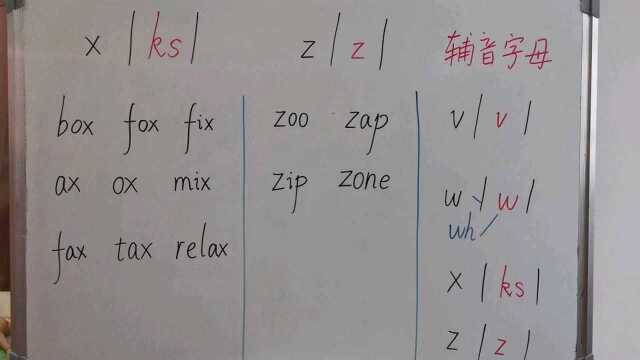 x |ks|
box fox fix
ax ox mix
fax tax relax
z |z|
zoo zap
zip zone
辅音字母
v |v|
w |w|
wh
x |ks|
z |z|